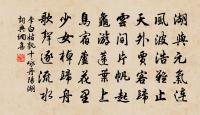 湖與元氣連
風波浩難止
天外賈客歸
雲間片帆起
龜游蓮葉上
鳥宿蘆花裏
少女棹歸舟
歌聲逐流水
李白姑孰十詠丹陽湖
詞典網集